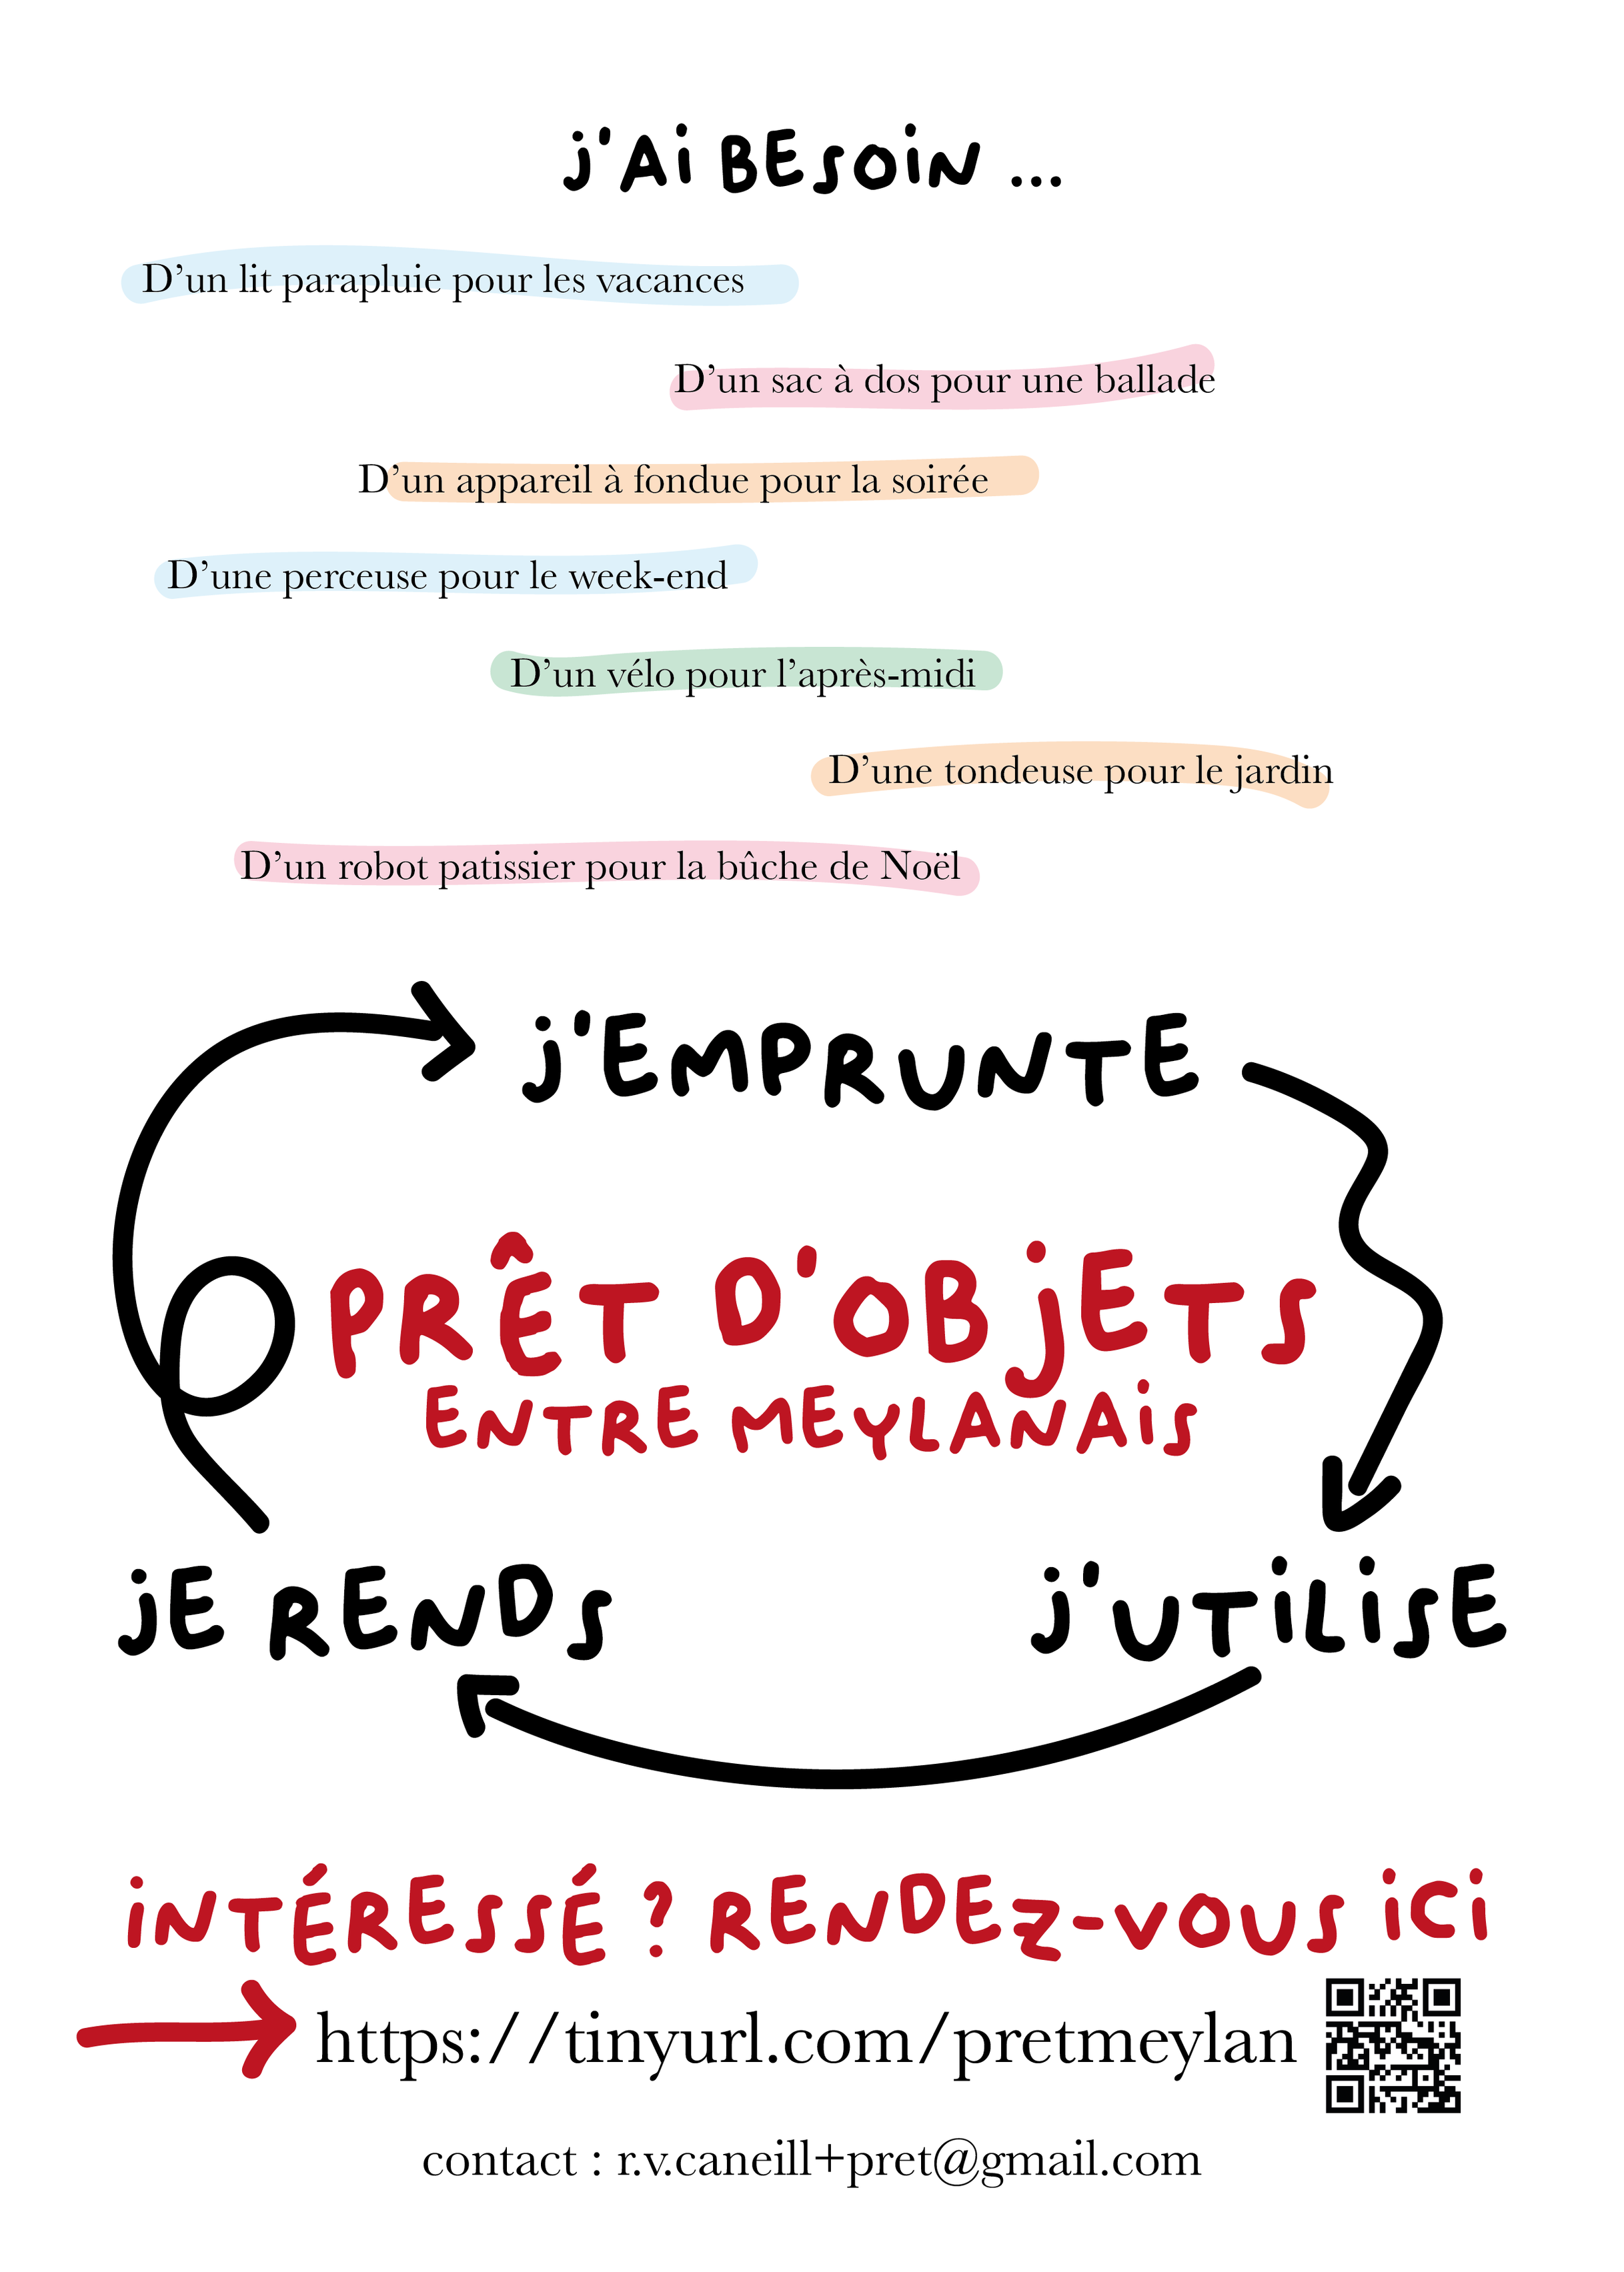 j'Ai BESOiN ...
D’un lit parapluie pour les vacances
D’un sac à dos pour une ballade
D’un appareil à fondue pour la soirée
D’une perceuse pour le week-end
D’un vélo pour l’après-midi
D’une tondeuse pour le jardin
D’un robot patissier pour la bûche de Noël
j'EMPRUNTE
PRÊT D'OBjETS
ENTRE MEYLANAiS
jE RENDS
j'UTiLiSE
iNTÉRESSÉ ? RENDEZ-VOUS iCi
https://tinyurl.com/pretmeylan
contact : r.v.caneill+pret@gmail.com